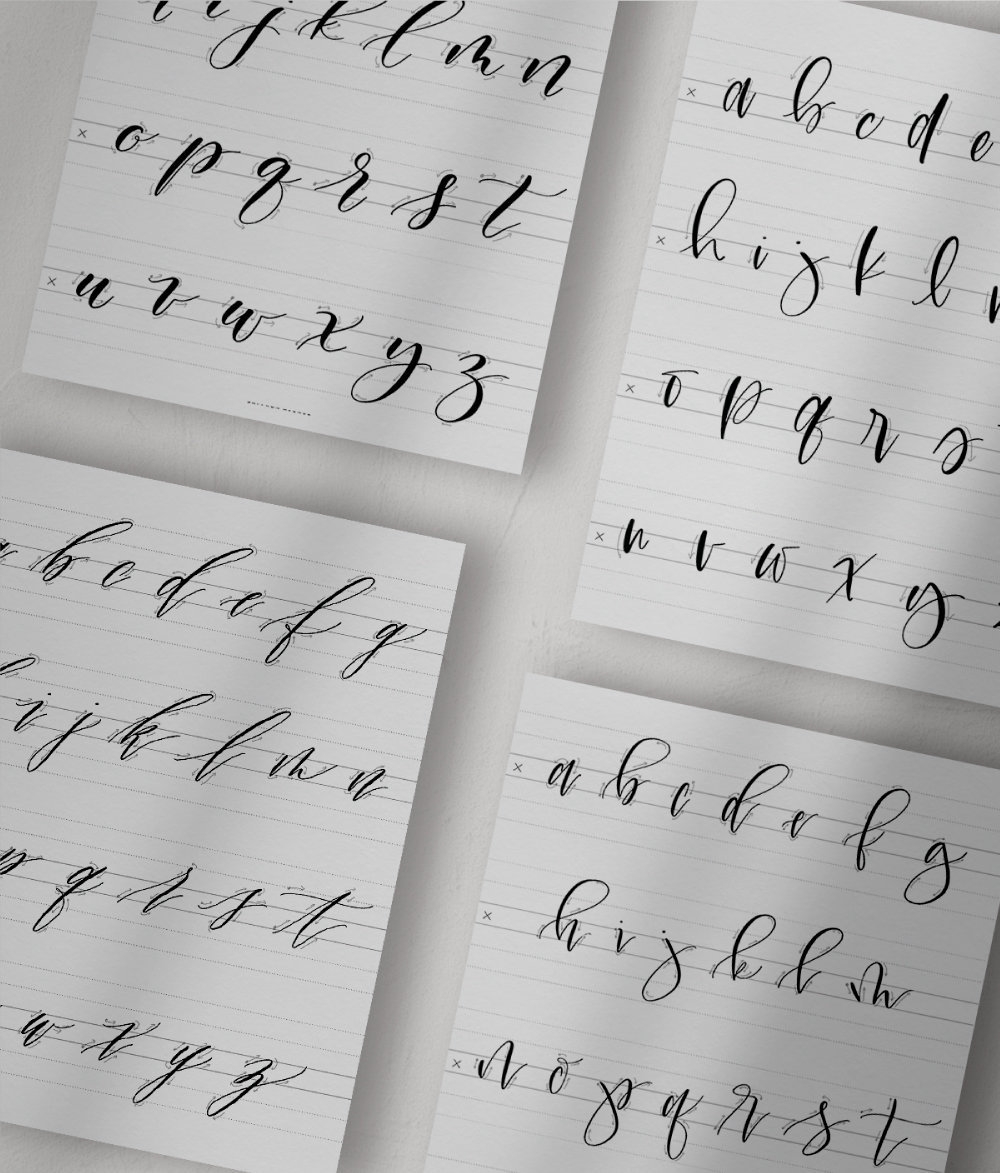 i j k l m n
× o p q r s t
× u v w x y z
× a b c d e
× h i j k l
× o p q r s
× u v w x y
a b c d e f g
i j k l m n
p q r s t
w x y z
× a b c d e f g
× h i j k l m
× n o p q r s t